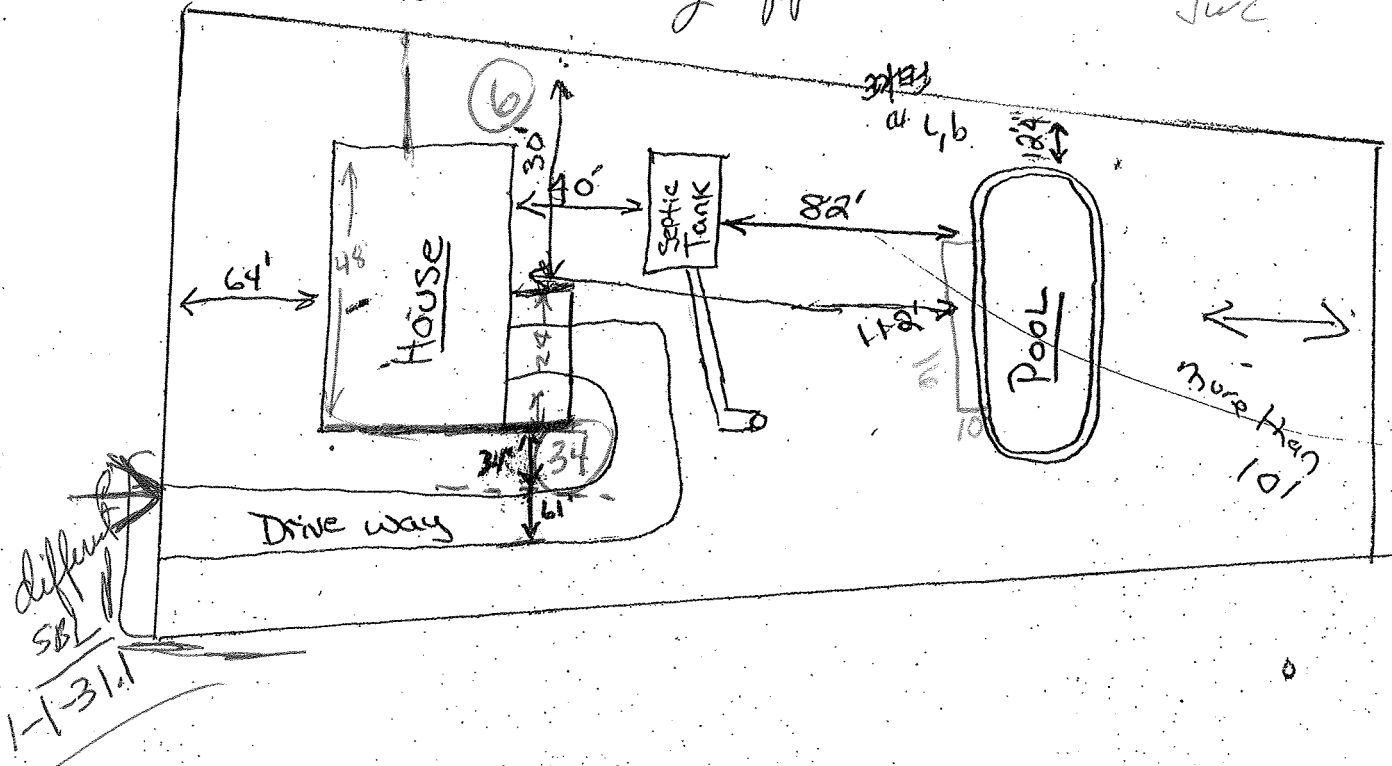 Jwc
6
30'
40'
Septic
Tank
82'
12'4"
at L,b
64'
48'
House
24
112'
16
10
Pool
more than
101
34'
34
61'
Drive way
different
SBL
1-1-31.1